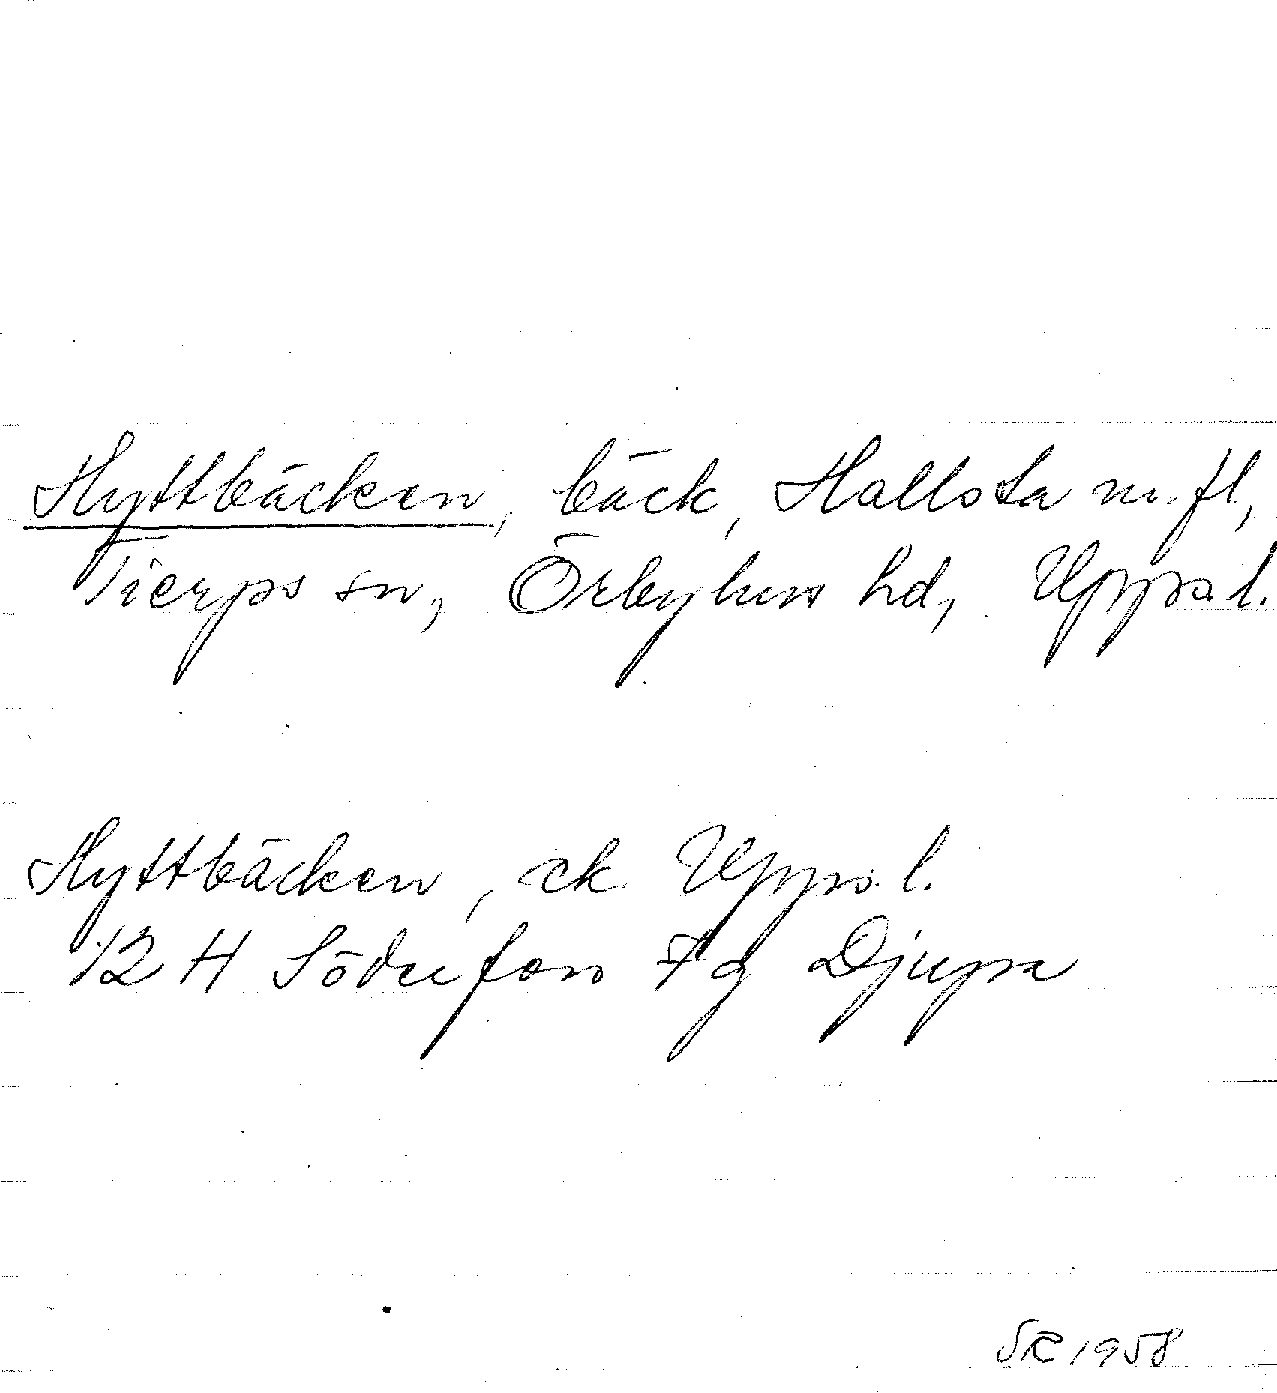 Hyttbäcken, bäck, Hallsta m. fl,
Tierps sn, Örbyhus hd, Upps. l.
Hyttbäcken, ek. Upps. l.
12 H Söderfors 7 g Djupa
SR 1958